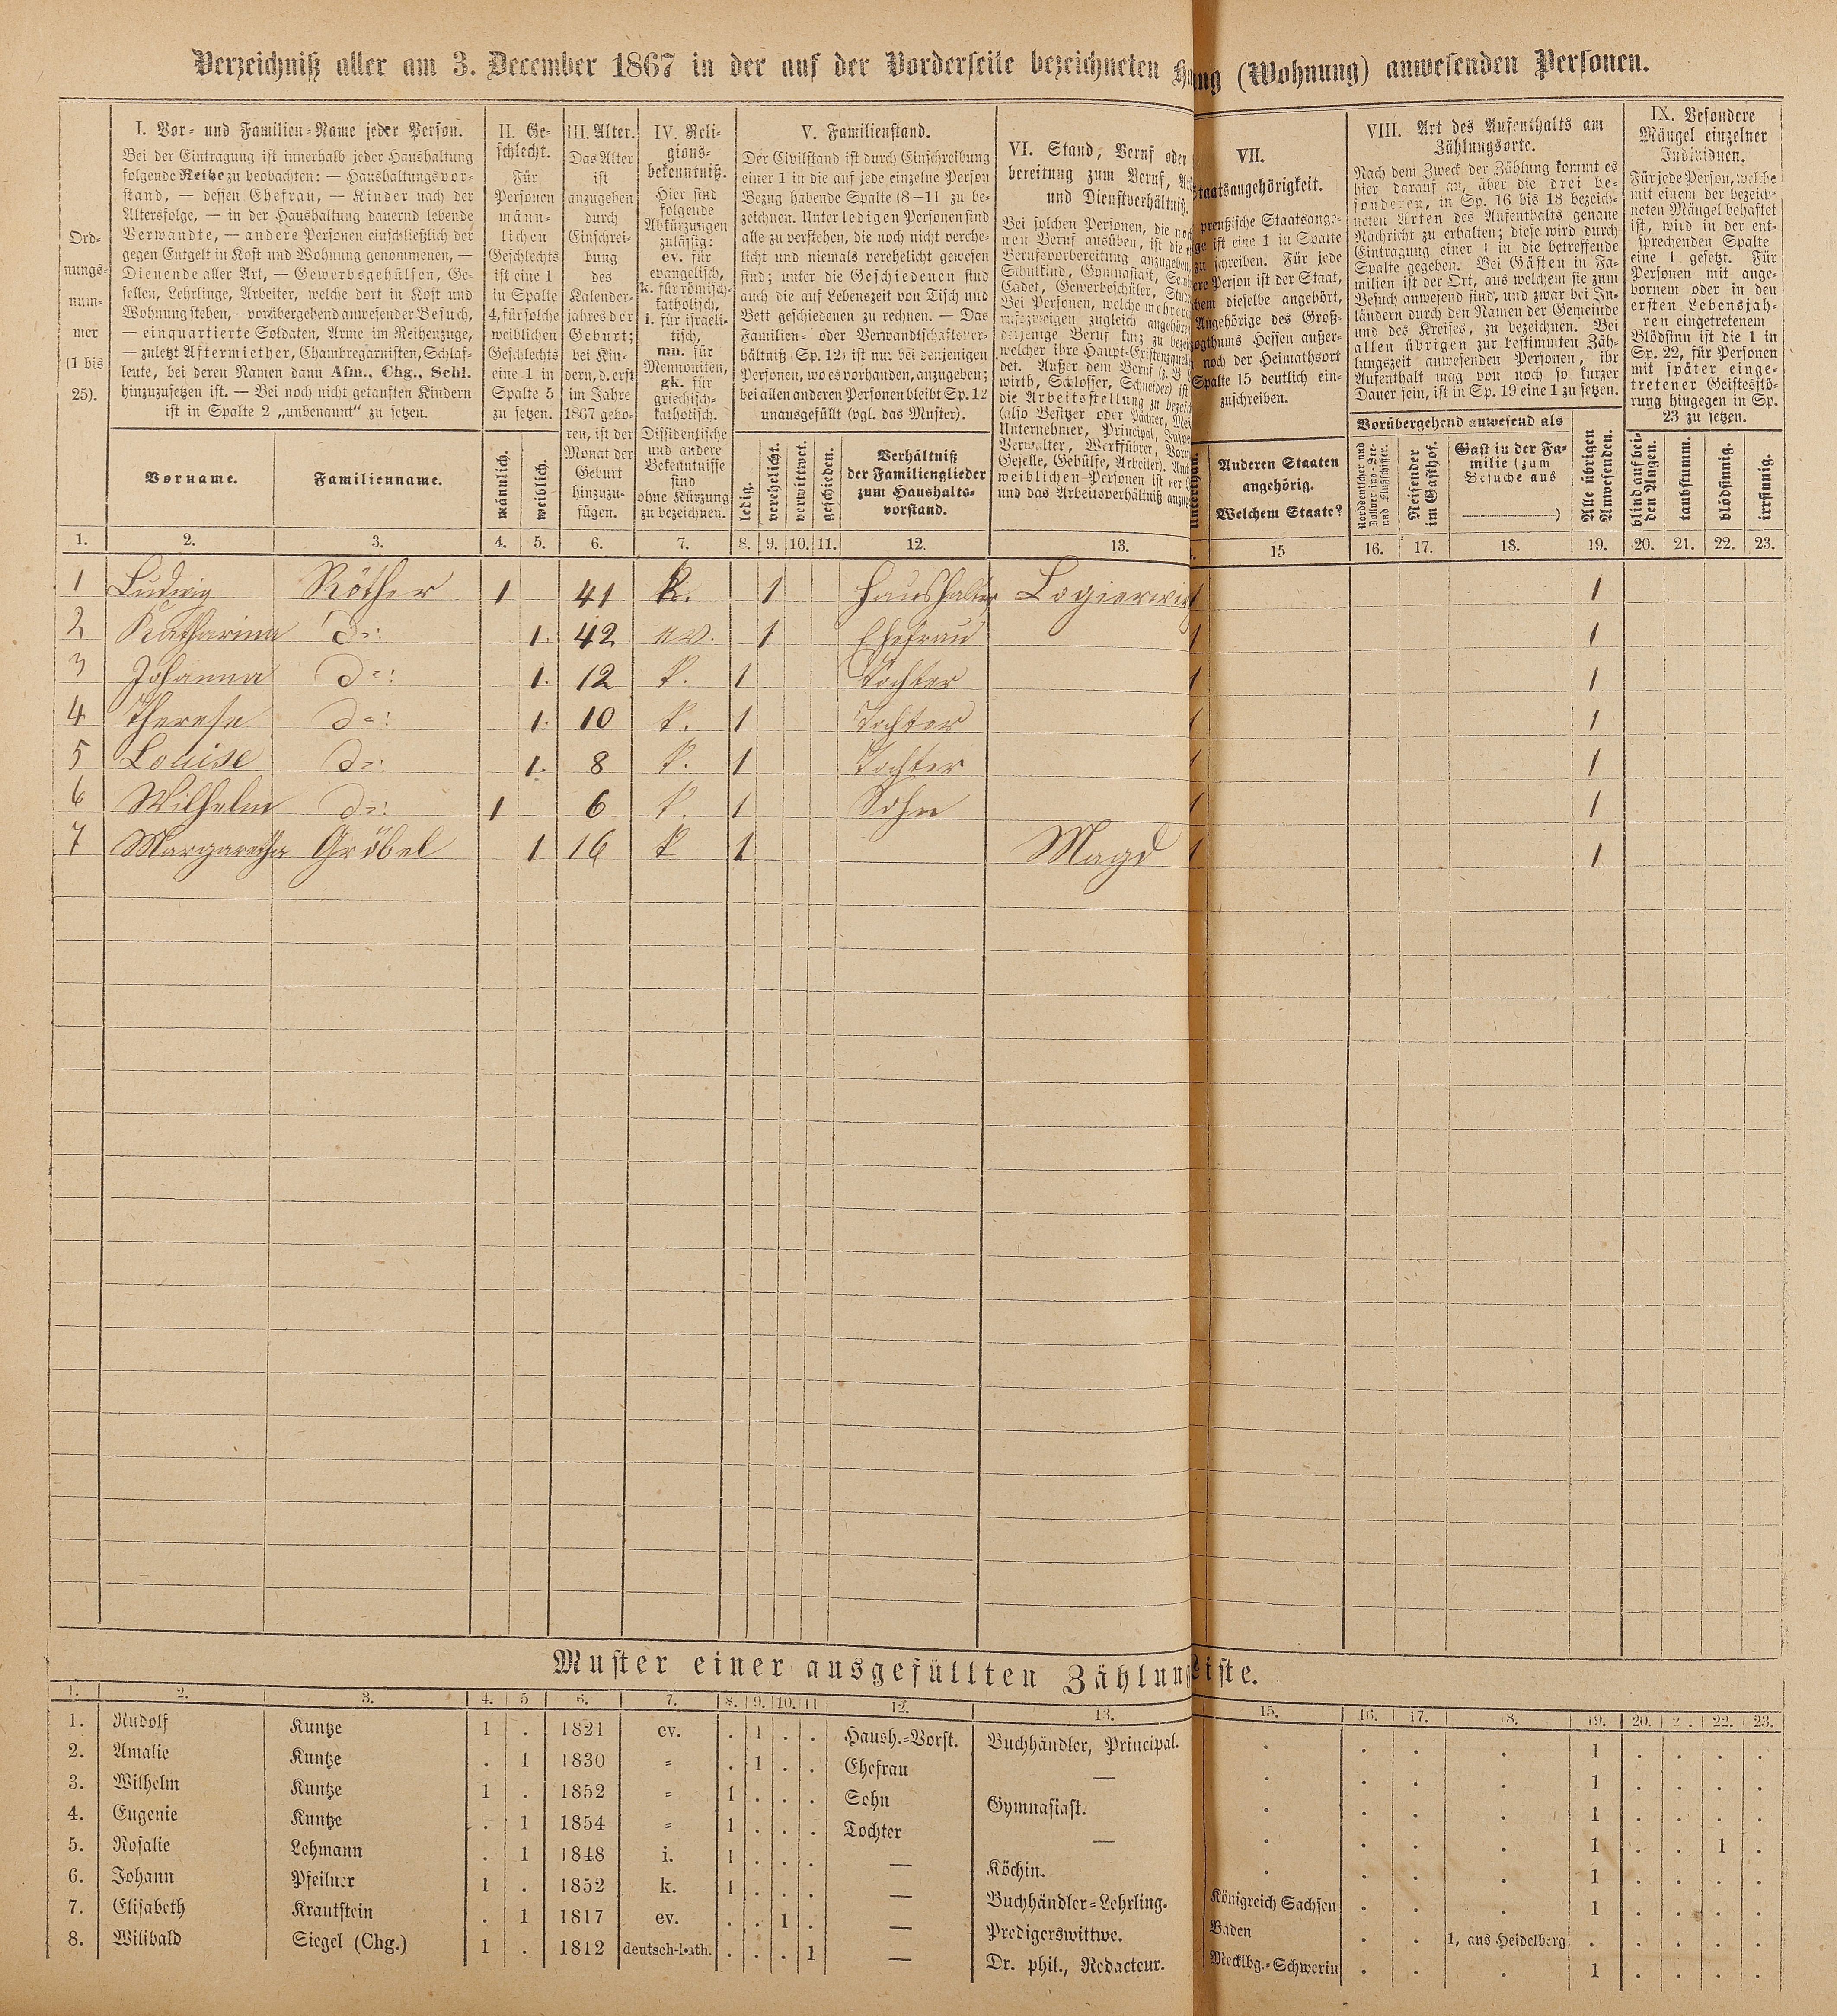 Verzeichniß aller am 3. December 1867 in der auf der Vorderseite bezeichneten
ng (Wohnung) anwesenden Personen.
Ord-
nungs-
num-
mer
(1 bis
25).
I. Vor- und Familien-Name jeder Person.
Bei der Eintragung ist innerhalb jeder Haushaltung
folgende Reihe zu beobachten: — Haushaltungsvor-
stand, — dessen Ehefrau, — Kinder nach der
Altersfolge, — in der Haushaltung dauernd lebende
Verwandte, — andere Personen einschließlich der
gegen Entgelt in Kost und Wohnung genommenen, —
Dienende aller Art, — Gewerbsgehülfen, Ge-
sellen, Lehrlinge, Arbeiter, welche dort in Kost und
Wohnung stehen, — vorübergehend anwesender Besuch,
— einquartierte Soldaten, Arme im Reihenzuge,
— zuletzt Aftermiether, Chambregarnisten, Schlaf-
leute, bei deren Namen dann Afm., Chg., Schl.
hinzuzusetzen ist. — Bei noch nicht getauften Kindern
ist in Spalte 2 „unbenannt“ zu setzen.
Vorname.
Familienname.
II. Ge-
schlecht.
Für
Personen
männ-
lichen
Geschlechts
ist eine 1
in Spalte
4, für solche
weiblichen
Geschlechts
eine 1 in
Spalte 5
zu setzen.
männlich.
weiblich.
III. Alter.
Das Alter
ist
anzugeben
durch
Einschrei-
bung
des
Kalender-
jahres der
Geburt;
bei Kin-
dern, d. erst
im Jahre
1867 gebo-
ren, ist der
Monat der
Geburt
hinzuzu-
fügen.
IV. Reli-
gions-
bekenntniß.
Hier sind
folgende
Abkürzungen
zulässig:
ev. für
evangelisch,
k. für römisch-
katholisch,
i. für israeli-
tisch,
mn. für
Mennoniten,
gk. für
griechisch-
katholisch.
Dissidentische
und andere
Bekenntnisse
sind
ohne Kürzung
zu bezeichnen.
V. Familienstand.
Der Civilstand ist durch Einschreibung
einer 1 in die auf jede einzelne Person
Bezug habende Spalte (8—11 zu be-
zeichnen. Unter ledigen Personen sind
alle zu verstehen, die noch nicht verehe-
licht und niemals verehelicht gewesen
sind; unter die Geschiedenen sind
auch die auf Lebenszeit von Tisch und
Bett geschiedenen zu rechnen. — Das
Familien- oder Verwandtschaftsver-
hältniß (Sp. 12) ist nur bei denjenigen
Personen, wo es vorhanden, anzugeben;
bei allen anderen Personen bleibt Sp. 12
unausgefüllt (vgl. das Muster).
ledig.
verehelicht.
verwittwet.
geschieden.
Verhältniß
der Familienglieder
zum Haushalts-
vorstand.
VI. Stand, Beruf oder
bereitung zum Beruf,
und Dienstverhältniß.
Bei solchen Personen, die
nen Beruf ausüben, ist die
Berufsvorbereitung anzugeben,
Schulkind, Gymnasiast,
Cadet, Gewerbeschüler,
Bei Personen, welche mehreren
zugleich
derjenige Beruf kurz zu
welcher ihre
det. Außer dem Beruf (z. B.
wirth, Schlosser, Schneider) ist
die Arbeitsstellung zu
(also Besitzer oder Pächter,
Unternehmer, Principal,
Verwalter, Werkführer,
Geselle, Gehülfe, Arbeiter).
weiblichen Personen ist
und das Arbeitsverhältniß
VII.
taatsangehörigkeit.
preußische Staatsange-
ist eine 1 in Spalte
zu schreiben. Für jede
Person ist der Staat,
dieselbe angehört,
Angehörige des Groß-
Hessen außer-
noch der Heimathsort
Spalte 15 deutlich ein-
zuschreiben.
Anderen Staaten
angehörig.
Welchem Staate?
VIII. Art des Aufenthalts am
Zählungsorte.
Nach dem Zweck der Zählung kommt es
hier darauf an, über die drei be-
sonderen, in Sp. 16 bis 18 bezeich-
neten Arten des Aufenthalts genaue
Nachricht zu erhalten; diese wird durch
Eintragung einer 1 in die betreffende
Spalte gegeben. Bei Gästen in Fa-
milien ist der Ort, aus welchem sie zum
Besuch anwesend sind, und zwar bei In-
ländern durch den Namen der Gemeinde
und des Kreises, zu bezeichnen. Bei
allen übrigen zur bestimmten Zäh-
lungszeit anwesenden Personen, ihr
Aufenthalt mag von noch so kurzer
Dauer sein, ist in Sp. 19 eine 1 zu setzen.
Vorübergehend anwesend als
Reisender
im Gasthof.
Gast in der Fa-
milie (zum
Besuche aus
)
Alle übrigen
Anwesenden.
IX. Besondere
Mängel einzelner
Individuen.
Für jede Person, welche
mit einem der bezeich-
neten Mängel behaftet
ist, wird in der ent-
sprechenden Spalte
eine 1 gesetzt. Für
Personen mit ange-
bornem oder in den
ersten Lebensjah-
ren eingetretenem
Blödsinn ist die 1 in
Sp. 22, für Personen
mit später einge-
tretener Geistesstö-
rung hingegen in Sp.
23 zu setzen.
blind auf bei-
den Augen.
taubstumm.
blödsinnig.
irrsinnig.
1. 2. 3. 4. 5. 6. 7. 8. 9. 10. 11. 12. 13. 15 16. 17. 18. 19. 20. 21. 22. 23.
1 Ludwig Röther 1 41 k. 1 Haushalter Logierwirt 1
2 Katharina do: 1. 42 ev. 1 Ehefrau 1 1
3 Johanna do: 1. 12 k. 1 Tochter 1 1
4 Therese do: 1. 10 k. 1 Tochter 1 1
5 Louise do: 1. 8 k. 1 Tochter 1 1
6 Wilhelm do: 1 6 k. 1 Sohn 1 1
7 Margaretha Gröbel 1 16 k 1 Magd 1 1
Muster einer ausgefüllten Zählungsliste.
1. 2. 3. 4. 5 6. 7. 8. 9. 10. 11 12. 13. 15. 16. 17. 8. 19. 20. 2. 22. 23.
1. Rudolf Kuntze 1 . 1821 ev. . 1 . . Haush.-Vorst. Buchhändler, Principal. . . . . 1 . . . .
2. Amalie Kuntze . 1 1830 " . 1 . . Ehefrau — . . . . 1 . . . .
3. Wilhelm Kuntze 1 . 1852 " 1 . . . Sohn Gymnasiast. . . . . 1 . . . .
4. Eugenie Kuntze . 1 1854 " 1 . . . Tochter — . . . . 1 . . 1 .
5. Rosalie Lehmann . 1 1848 i. 1 . . . — Köchin. . . . . 1 . . . .
6. Johann Pfeilner 1 . 1852 k. 1 . . . — Buchhändler-Lehrling. Königreich Sachsen . . . 1 . . . .
7. Elisabeth Krautstein . 1 1817 ev. . . 1 . — Predigerswittwe. Baden . . 1, aus Heidelberg . . . . .
8. Wilibald Siegel (Chg.) 1 . 1812 deutsch-kath. . . . 1 — Dr. phil., Redacteur. Mecklbg.-Schwerin . . . 1 . . . .